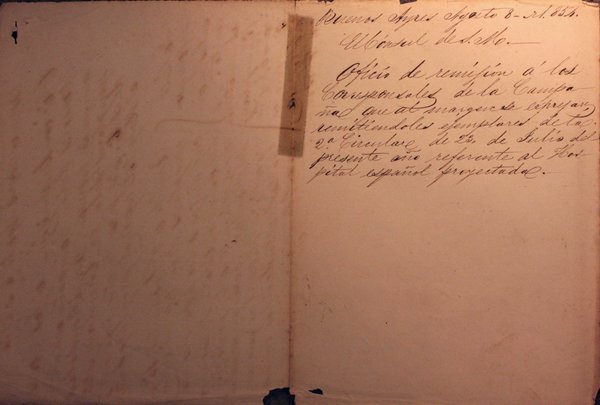 Buenos Ayres Agosto 8 de 1.854.
El Cónsul de S. M.
Oficio de remision á los
Corresponsales de la Campa
ña que al margen se espresan
remitiendoles ejemplares de la
2ª Circular de 22 de Julio del
presente año referente al Hos
pital español proyectado.